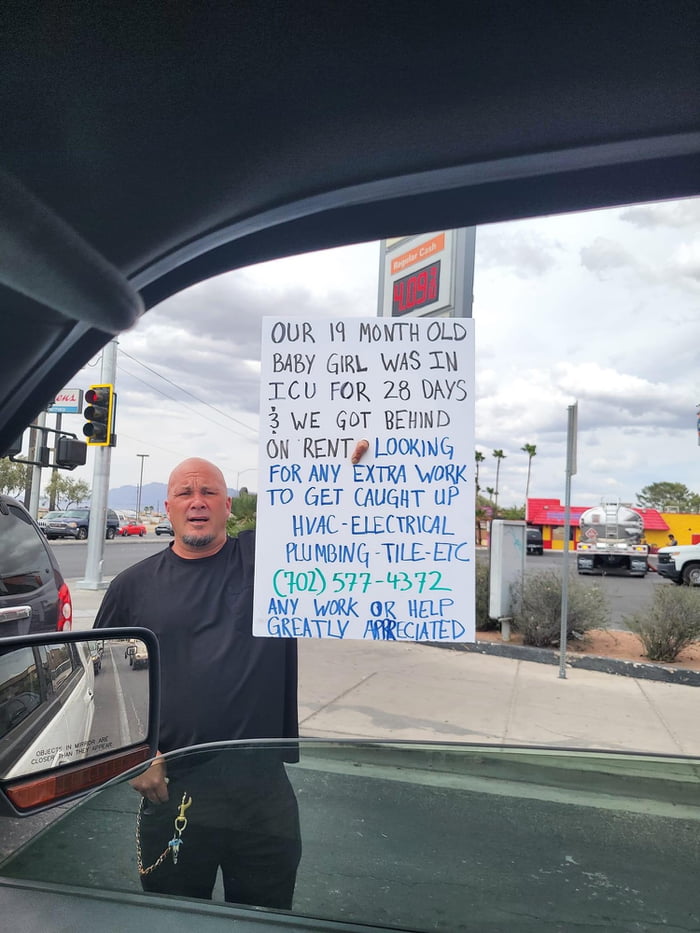 Regular Cash
4.09
OUR 19 MONTH OLD
BABY GIRL WAS IN
ICU FOR 28 DAYS
& WE GOT BEHIND
ON RENT LOOKING
FOR ANY EXTRA WORK
TO GET CAUGHT UP
HVAC - ELECTRICAL
PLUMBING - TILE - ETC
(702) 577-4372
ANY WORK OR HELP
GREATLY APPRECIATED
OBJECTS IN MIRROR ARE
CLOSER THAN THEY APPEAR